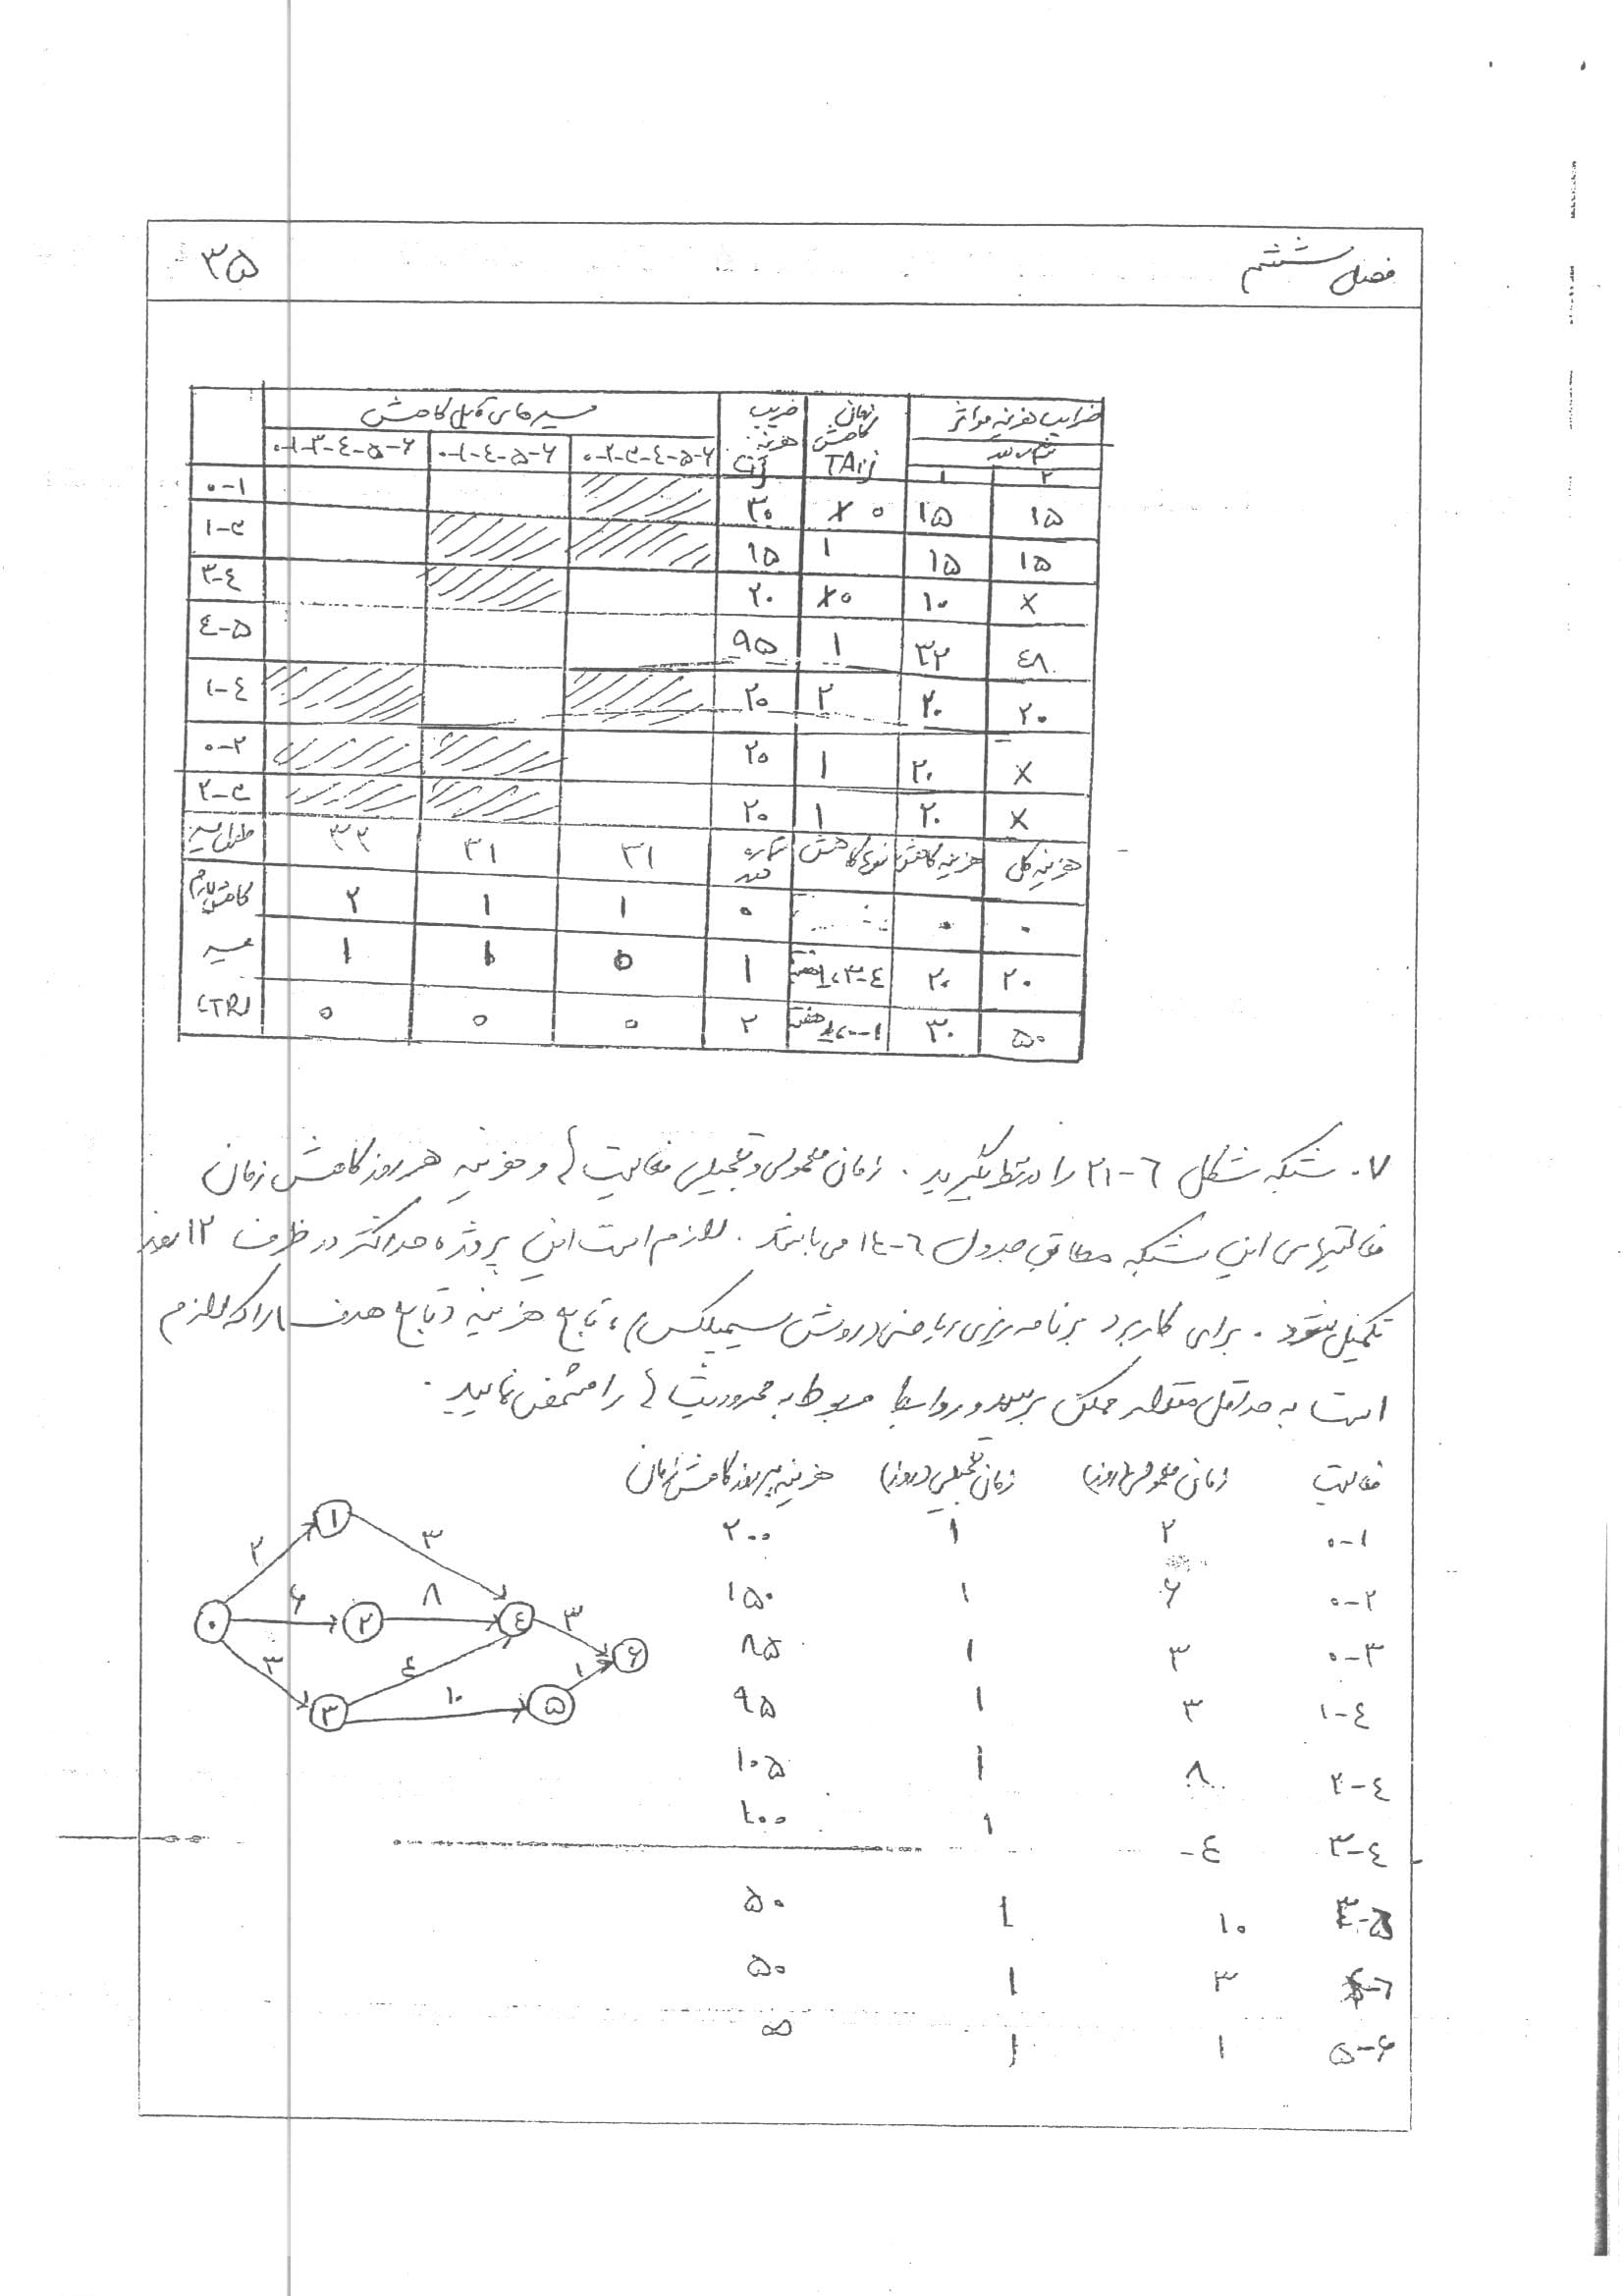 فصل ششم
۳۵
ضرایب هزینه مؤثر
زمان کاهش TAij
ضریب هزینه Cij
مسیرهای قابل کاهش
۱ ۲
۰-۲-۳-۴-۵-۶ ۰-۱-۴-۵-۶ ۰-۱-۳-۴-۵-۶
۰-۱ ۳۰ ۰ ۱۵ ۱۵
۱-۳ ۱۵ ۱ ۱۵ ۱۵
۳-۴ ۲۰ ۰ ۱۰ ×
۴-۵ ۹۵ ۱ ۳۲ ۴۸
۱-۴ ۲۰ ۲ ۲۰ ۲۰
۰-۲ ۲۰ ۱ ۲۰ ×
۲-۳ ۲۰ ۱ ۲۰ ×
طول مسیر ۳۳ ۳۱ ۳۱ شماره هزینه کاهش هزینه کل
کاهش لازم ۲ ۱ ۱ ۰ ۰ ۰
مسیر ۱ ۱ ۰ ۱ ۳-۴، ۱ هفته ۲۰ ۲۰
(TR) ۰ ۰ ۰ ۲ ۰-۱، ۱ هفته ۳۰ ۵۰
۷. شبکه شکل ۶-۲۱ را در نظر بگیرید. زمان معمولی و تعجیلی فعالیت ها و هزینه هر روز کاهش زمان
فعالیتهای این شبکه مطابق جدول ۶-۱۴ می باشد. لازم است این پروژه حداکثر در ظرف ۱۲ روز
تکمیل شود. برای کاربرد برنامه ریزی ریاضی (روش سیمپلکس)، تابع هزینه و تابع هدف را که لازم
است به حداقل مقدار ممکن برسد و روابط مربوط به محدودیت ها را مشخص نمایید.
فعالیت زمان معمولی (روز) زمان تعجیلی (روز) هزینه هر روز کاهش زمان
۰-۱ ۲ ۱ ۲۰۰
۰-۲ ۶ ۱ ۱۵۰
۰-۳ ۳ ۱ ۸۵
۱-۴ ۳ ۱ ۹۵
۲-۴ ۸ ۱ ۱۰۵
۳-۴ ۴ ۱ ۱۰۰
۳-۵ ۱۰ ۱ ۵۰
۴-۶ ۳ ۱ ۵۰
۵-۶ ۱ ۱ ∞
۱
۲ ۳
۰ ۶ ۲ ۸ ۴ ۳
۶
۳ ۴ ۱
۳ ۱۰ ۵